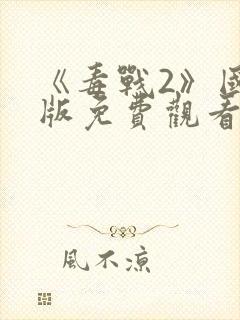 《毒戰2》國
版免費觀看
風不涼